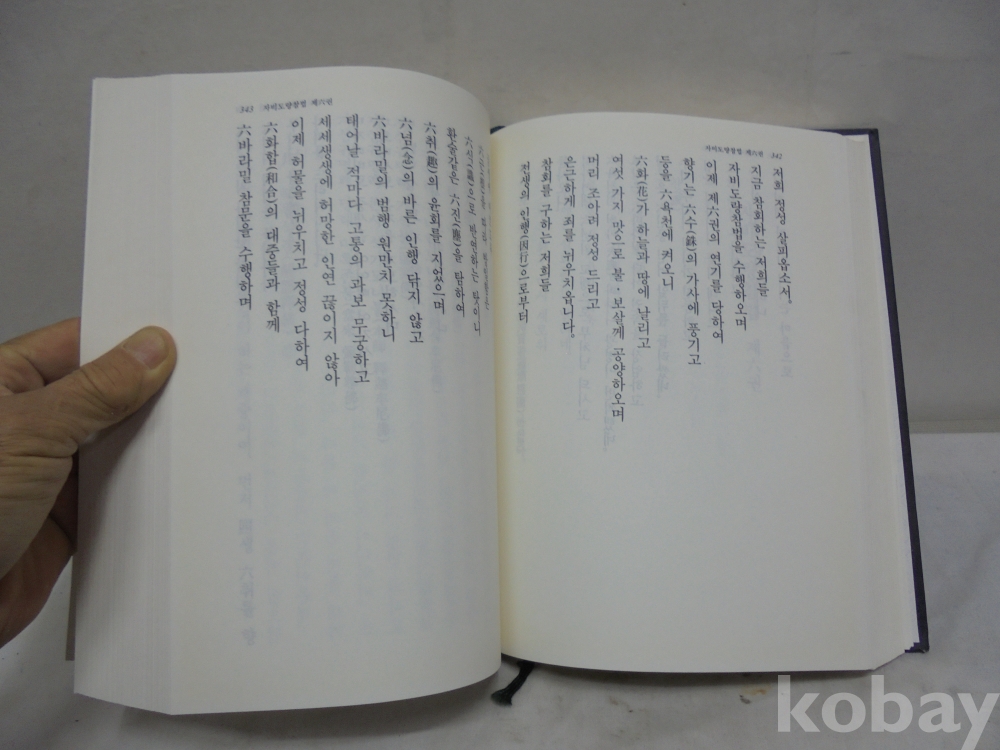 자비도량참법 제六권 342
저희 정성 살피옵소서.
지금 참회하는 저희들
자비도량참법을 수행하오며
이제 제六권의 연기를 당하여
향기는 六수(銖)의 가사에 풍기고
등을 六욕천에 켜오니
六화(花)가 하늘과 땅에 날리고
여섯 가지 맛으로 불·보살께 공양하오며
머리 조아려 정성 드리고
은근하게 죄를 뉘우치옵니다.
참회를 구하는 저희들
전생의 인행(因行)으로부터
343 자비도량참법 제六권
六식(識)으로 반연하는 탓이니
환술같은 六진(塵)을 탐하여
六취(趣)의 윤회를 지었으며
六념(念)의 바른 인행 닦지 않고
六바라밀의 범행 원만치 못하니
태어날 적마다 고통의 과보 무궁하고
세세생생에 허망한 인연 끊이지 않아
이제 허물을 뉘우치고 정성 다하여
六화합(和合)의 대중들과 함께
六바라밀 참문을 수행하며
kobay